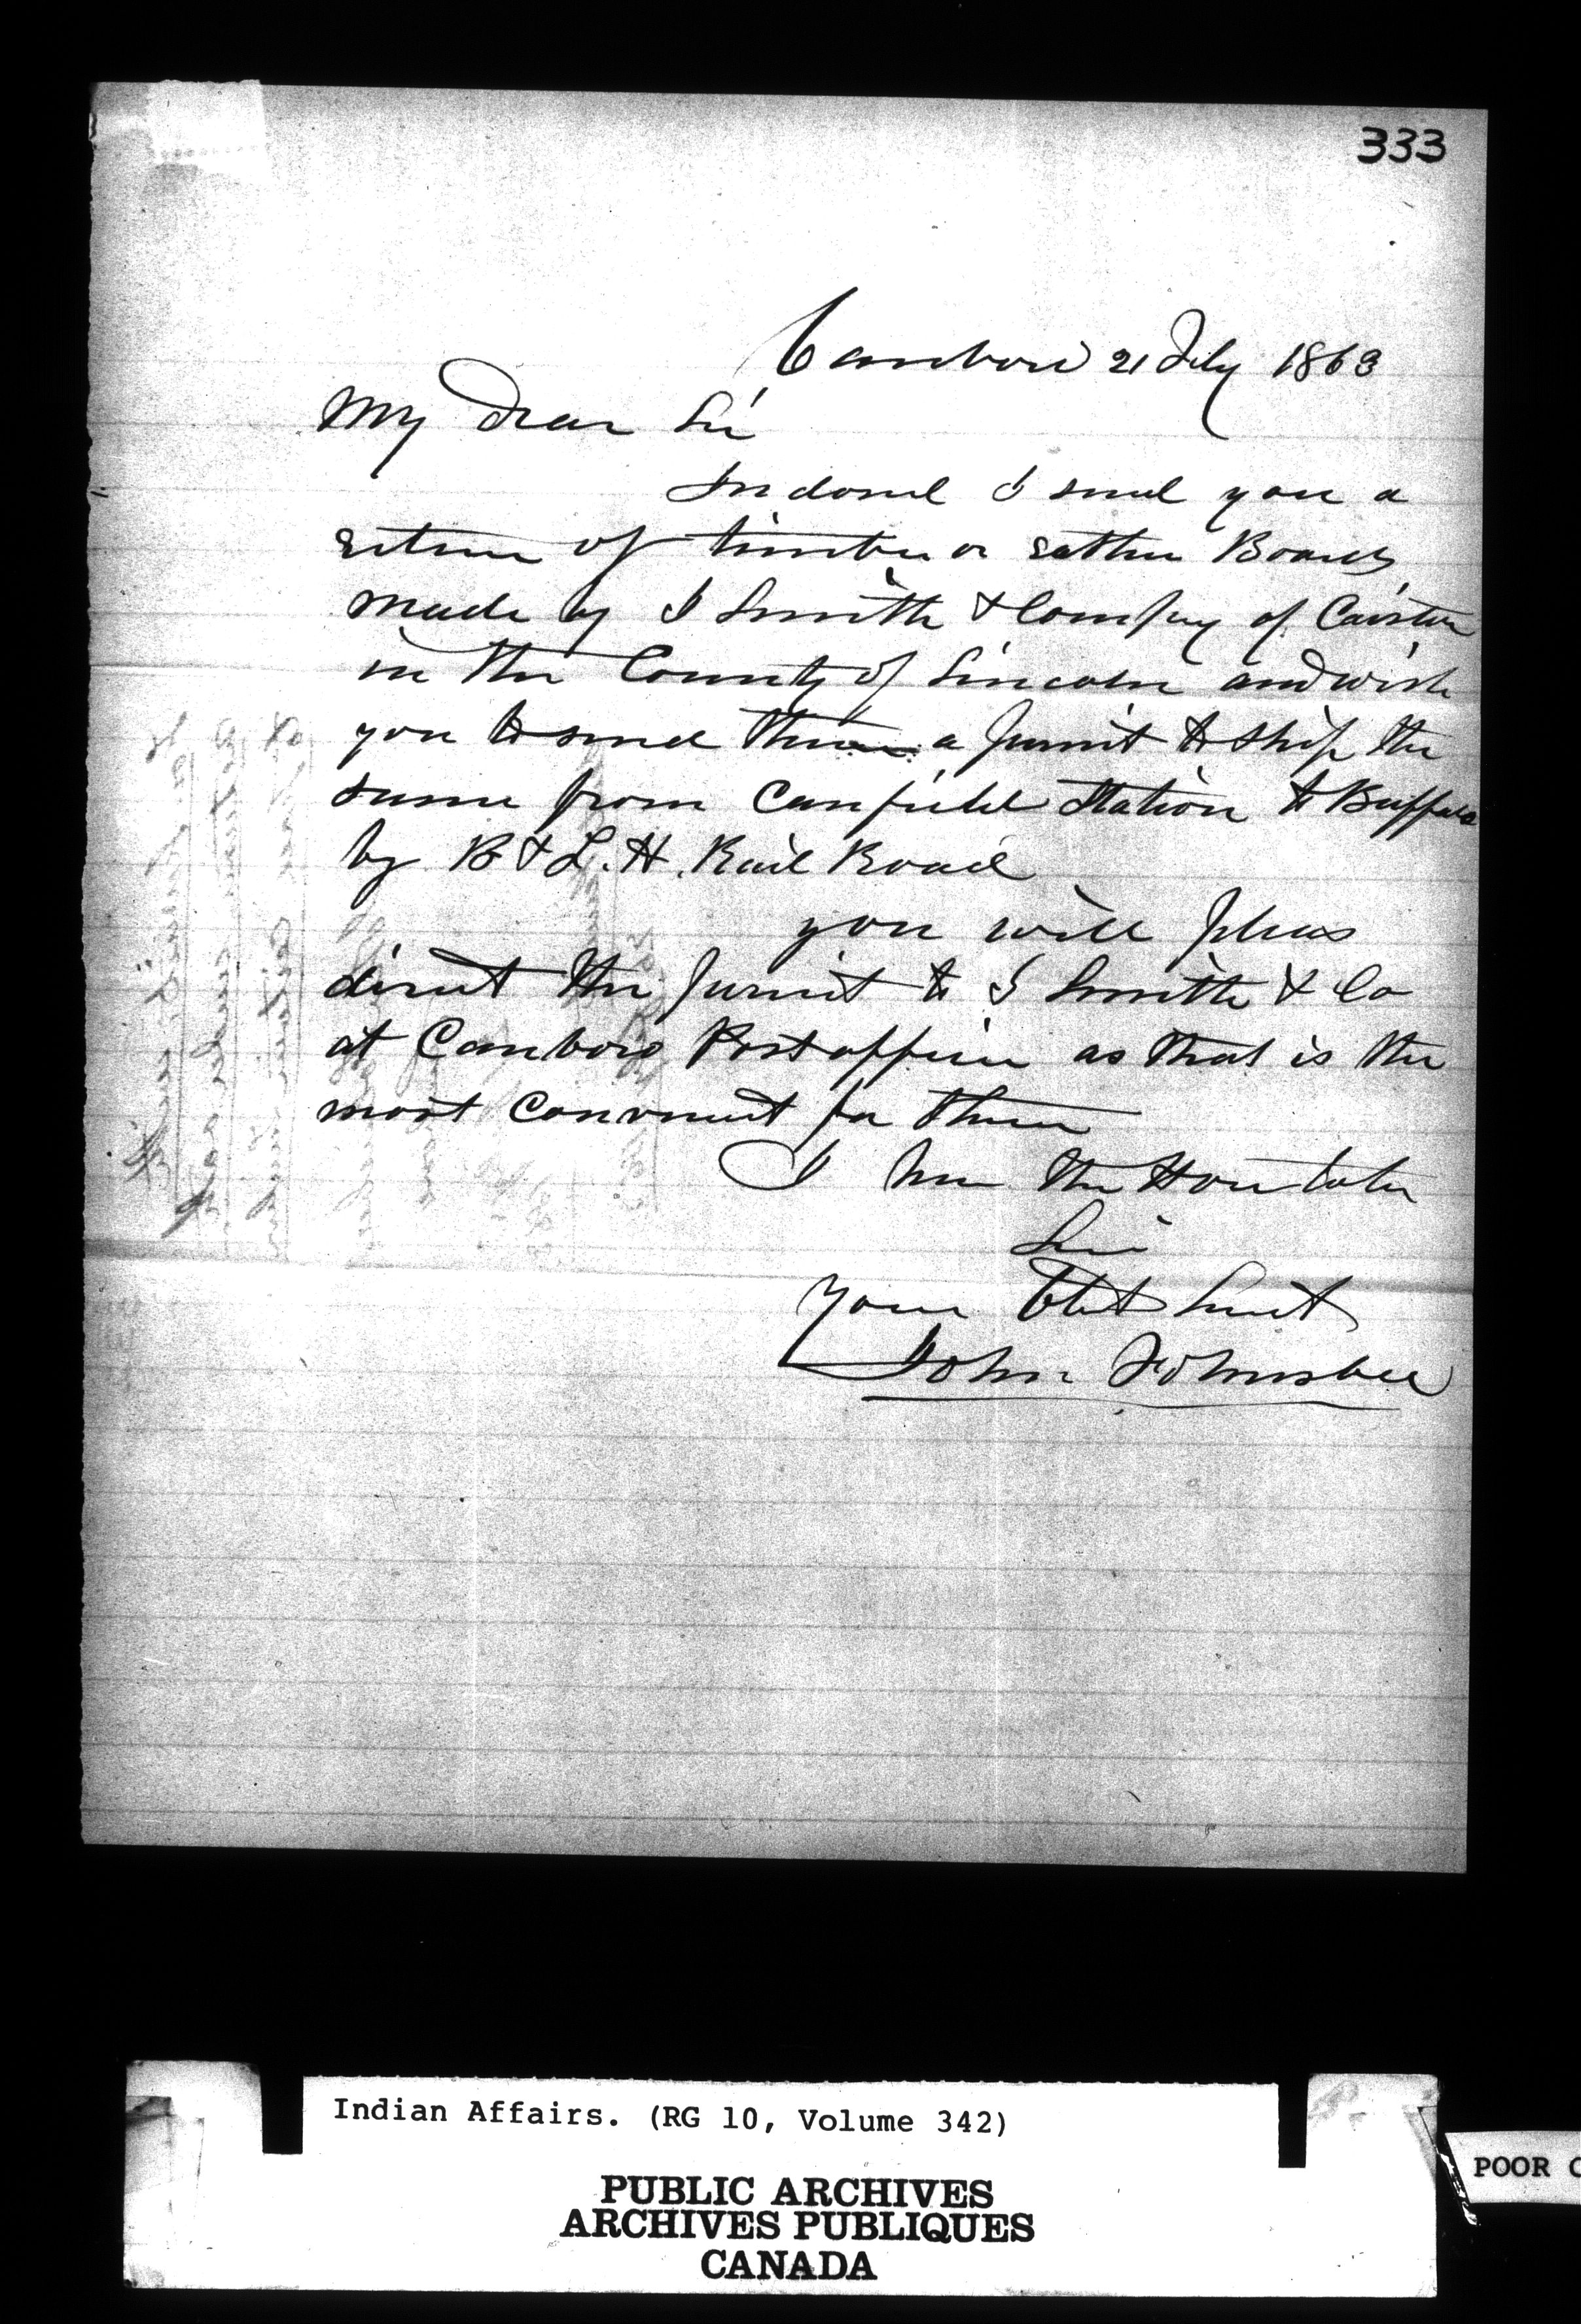 333
Canboro 21 July 1863
My Dear Sir
Inclosed I send you a
return of timber or rather Boards
made by I Smith & Compay of Caistor
in the County of Lincoln and wish
you to send them a permit to ship the
same from Canfield Station to Buffalo
by B & L. H. Rail Road
you will pleas
direct the permit to I Smith & Co
at Canboro Post office as that is the
most convenient for them
I have the Honr to be
Sir
Your Obt Servt
John
Indian Affairs. (RG 10, Volume 342)
PUBLIC ARCHIVES
ARCHIVES PUBLIQUES
CANADA
POOR